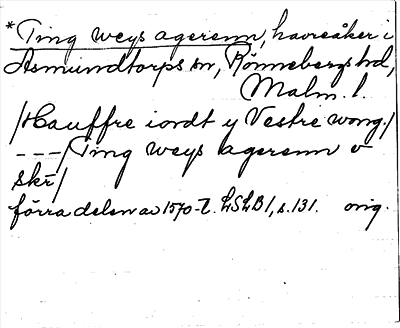 *Ting weys agerenn, havreåker i
Asmundtorps sn, Rönnebergs hd,
Malm. l.
/Hauffre iordt y Vestre wong./
---/Ting weys agerenn v
skr/
förra delen av 1570-t. LSLB1, s. 131. orig.